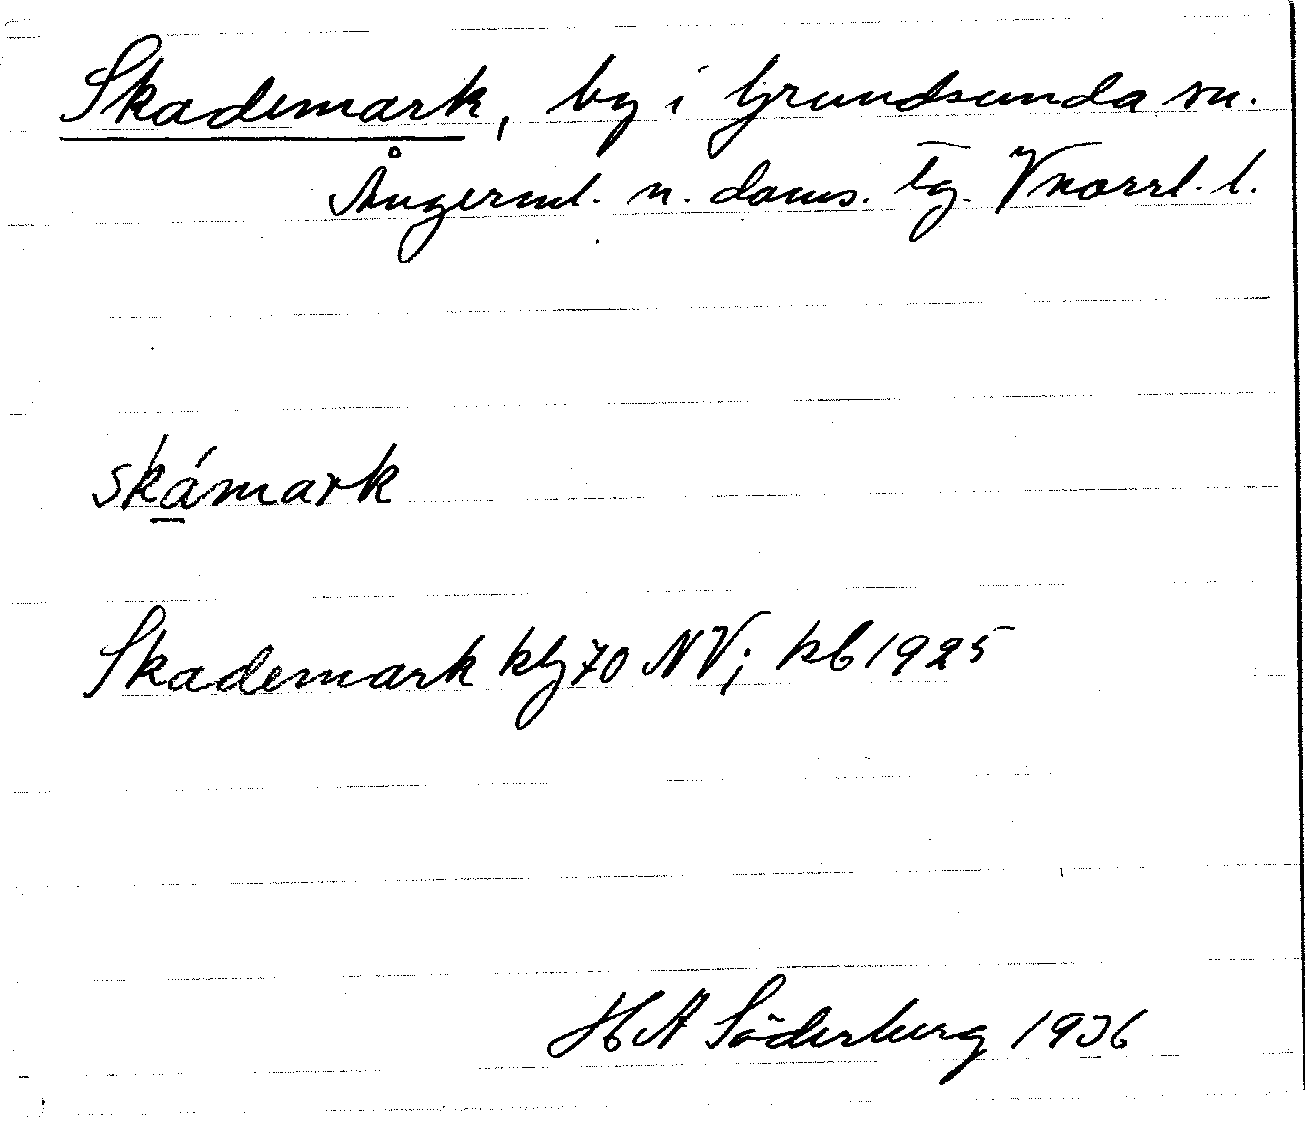 Skademark, by i Grundsunda sn.
Ångerml. n. doms. tg. Vnorrl. l.
skámark
Skademark kbg 70 NV; kb 1925
H A Söderberg 1936